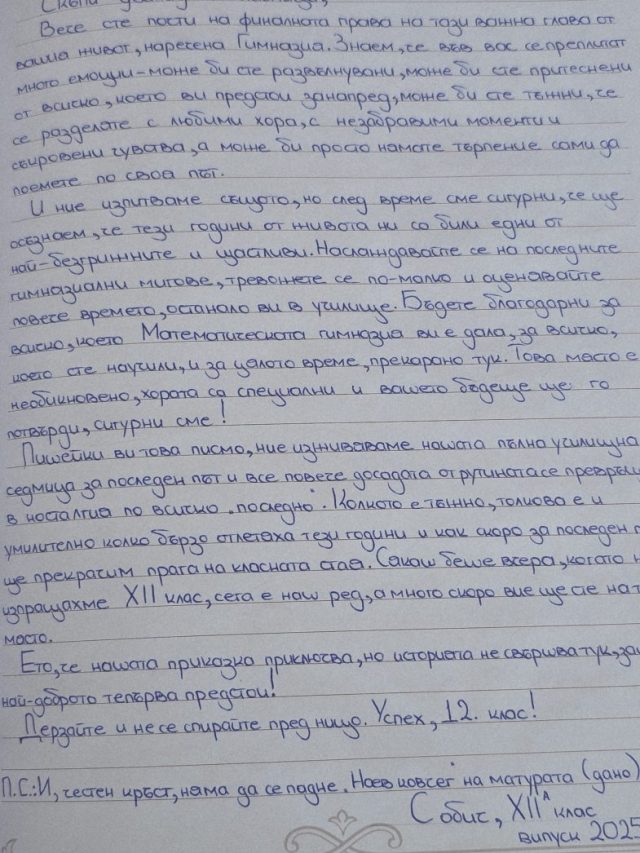 Вече сте почти на финалната права на тази важна глава от
вашия живот, наречена Гимназия. Знаем, че във вас се преплитат
много емоции - може би сте развълнувани, може би сте притеснени
от всичко, което ви предстои занапред, може би сте тъжни, че
се разделяте с любими хора, с незабравими моменти и
съкровени чувства, а може би просто нямате търпение сами да
поемете по своя път.
И ние изпитваме същото, но след време сме сигурни, че ще
осъзнаем, че тези години от живота ни са били едни от
най-безгрижните и щастливи. Наслаждавайте се на последните
гимназиални мигове, тревожете се по-малко и оценявайте
повече времето, останало ви в училище. Бъдете благодарни за
всичко, което Математическата гимназия ви е дала, за всичко,
което сте научили, и за цялото време, прекарано тук. Това място е
необикновено, хората са специални и вашето бъдеще ще го
потвърди, сигурни сме!
Пишейки ви това писмо, ние изживяваме нашата пълна училищна
седмица за последен път и все повече досадата от рутината се превръща
в носталгия по всичко „последно". Колкото е тъжно, толкова е и
умилително колко бързо отлетяха тези години и как скоро за последен
ще прекрачим прага на класната стая. Сякаш беше вчера, когато
изпращахме XII клас, сега е наш ред, а много скоро вие ще сте на
място.
Ето, че нашата приказка приключва, но историята не свършва тук,
най-доброто тепърва предстои!
Дерзайте и не се спирайте пред нищо. Успех, 12. клас!
П.С.: И, честен кръст, няма да се падне „Ноев ковчег" на матурата (дано)
С обич, XIIᴬ клас
випуск 2025